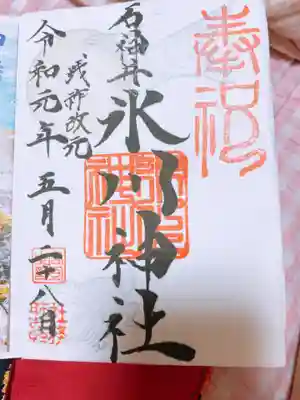 奉祝
石神井
氷川神社
践祚改元
令和元年五月二十八日